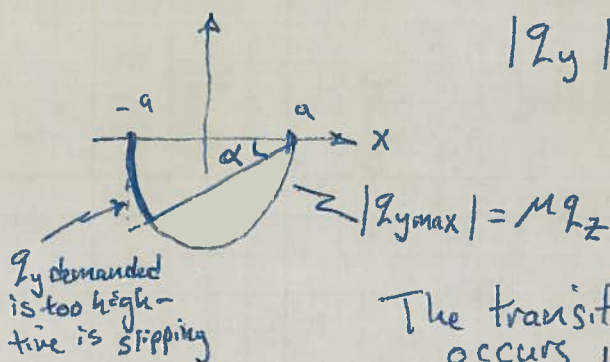 |q_y|
-a
a
α
x
|q_ymax| = μq_z
q_y demanded
is too high-
tire is slipping
The transit
occurs i